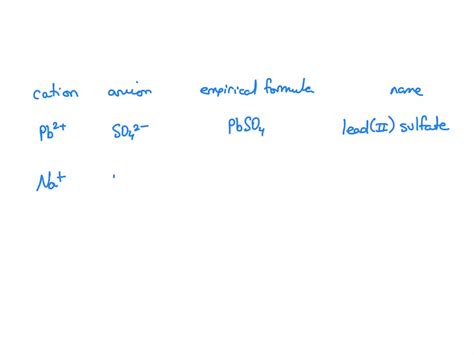 cation anion empirical formula name
Pb²⁺ SO₄²⁻ PbSO₄ lead(II) sulfate
Na⁺